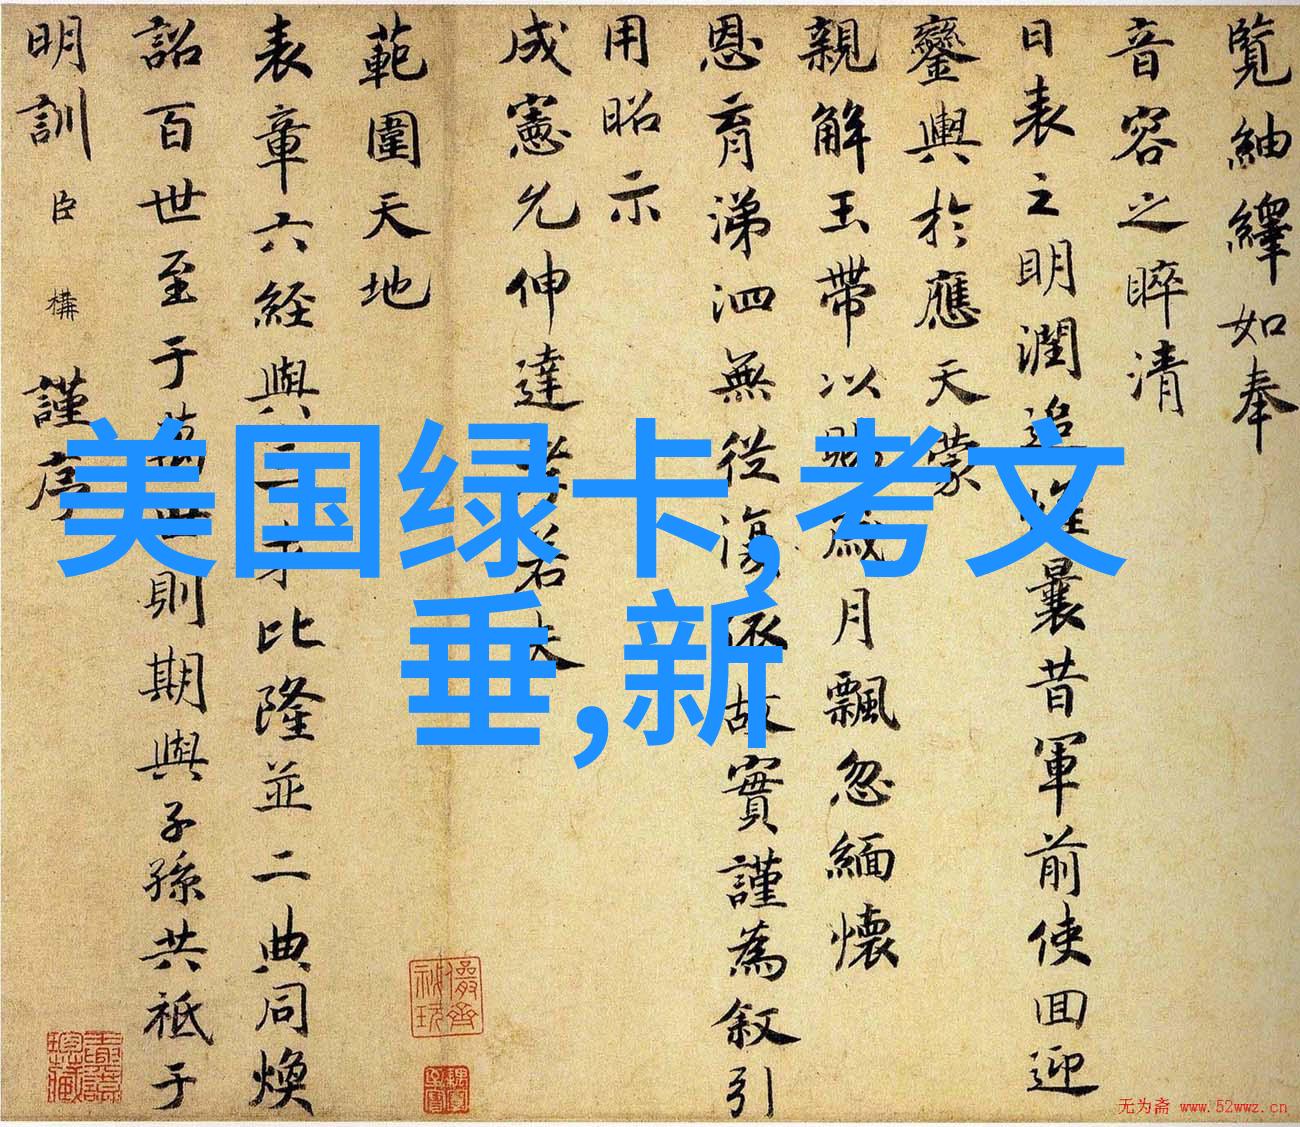 覽紬繹如奉
音容之睟清
日表之明潤追惟曩昔軍前使回迎
鑾輿於應天蒙
親解玉帶以賜歲月飄忽緬懷
恩育涕泗無從依故實謹為叙引
用昭示
成憲允伸達孝若夫
範圍天地
表章六経與三才比隆並二典同煥
詔百世至于萬世則期與子孫共祗于
明訓臣構謹序
美国绿卡,考文
垂,新
无为斋 www.52wwz.cn